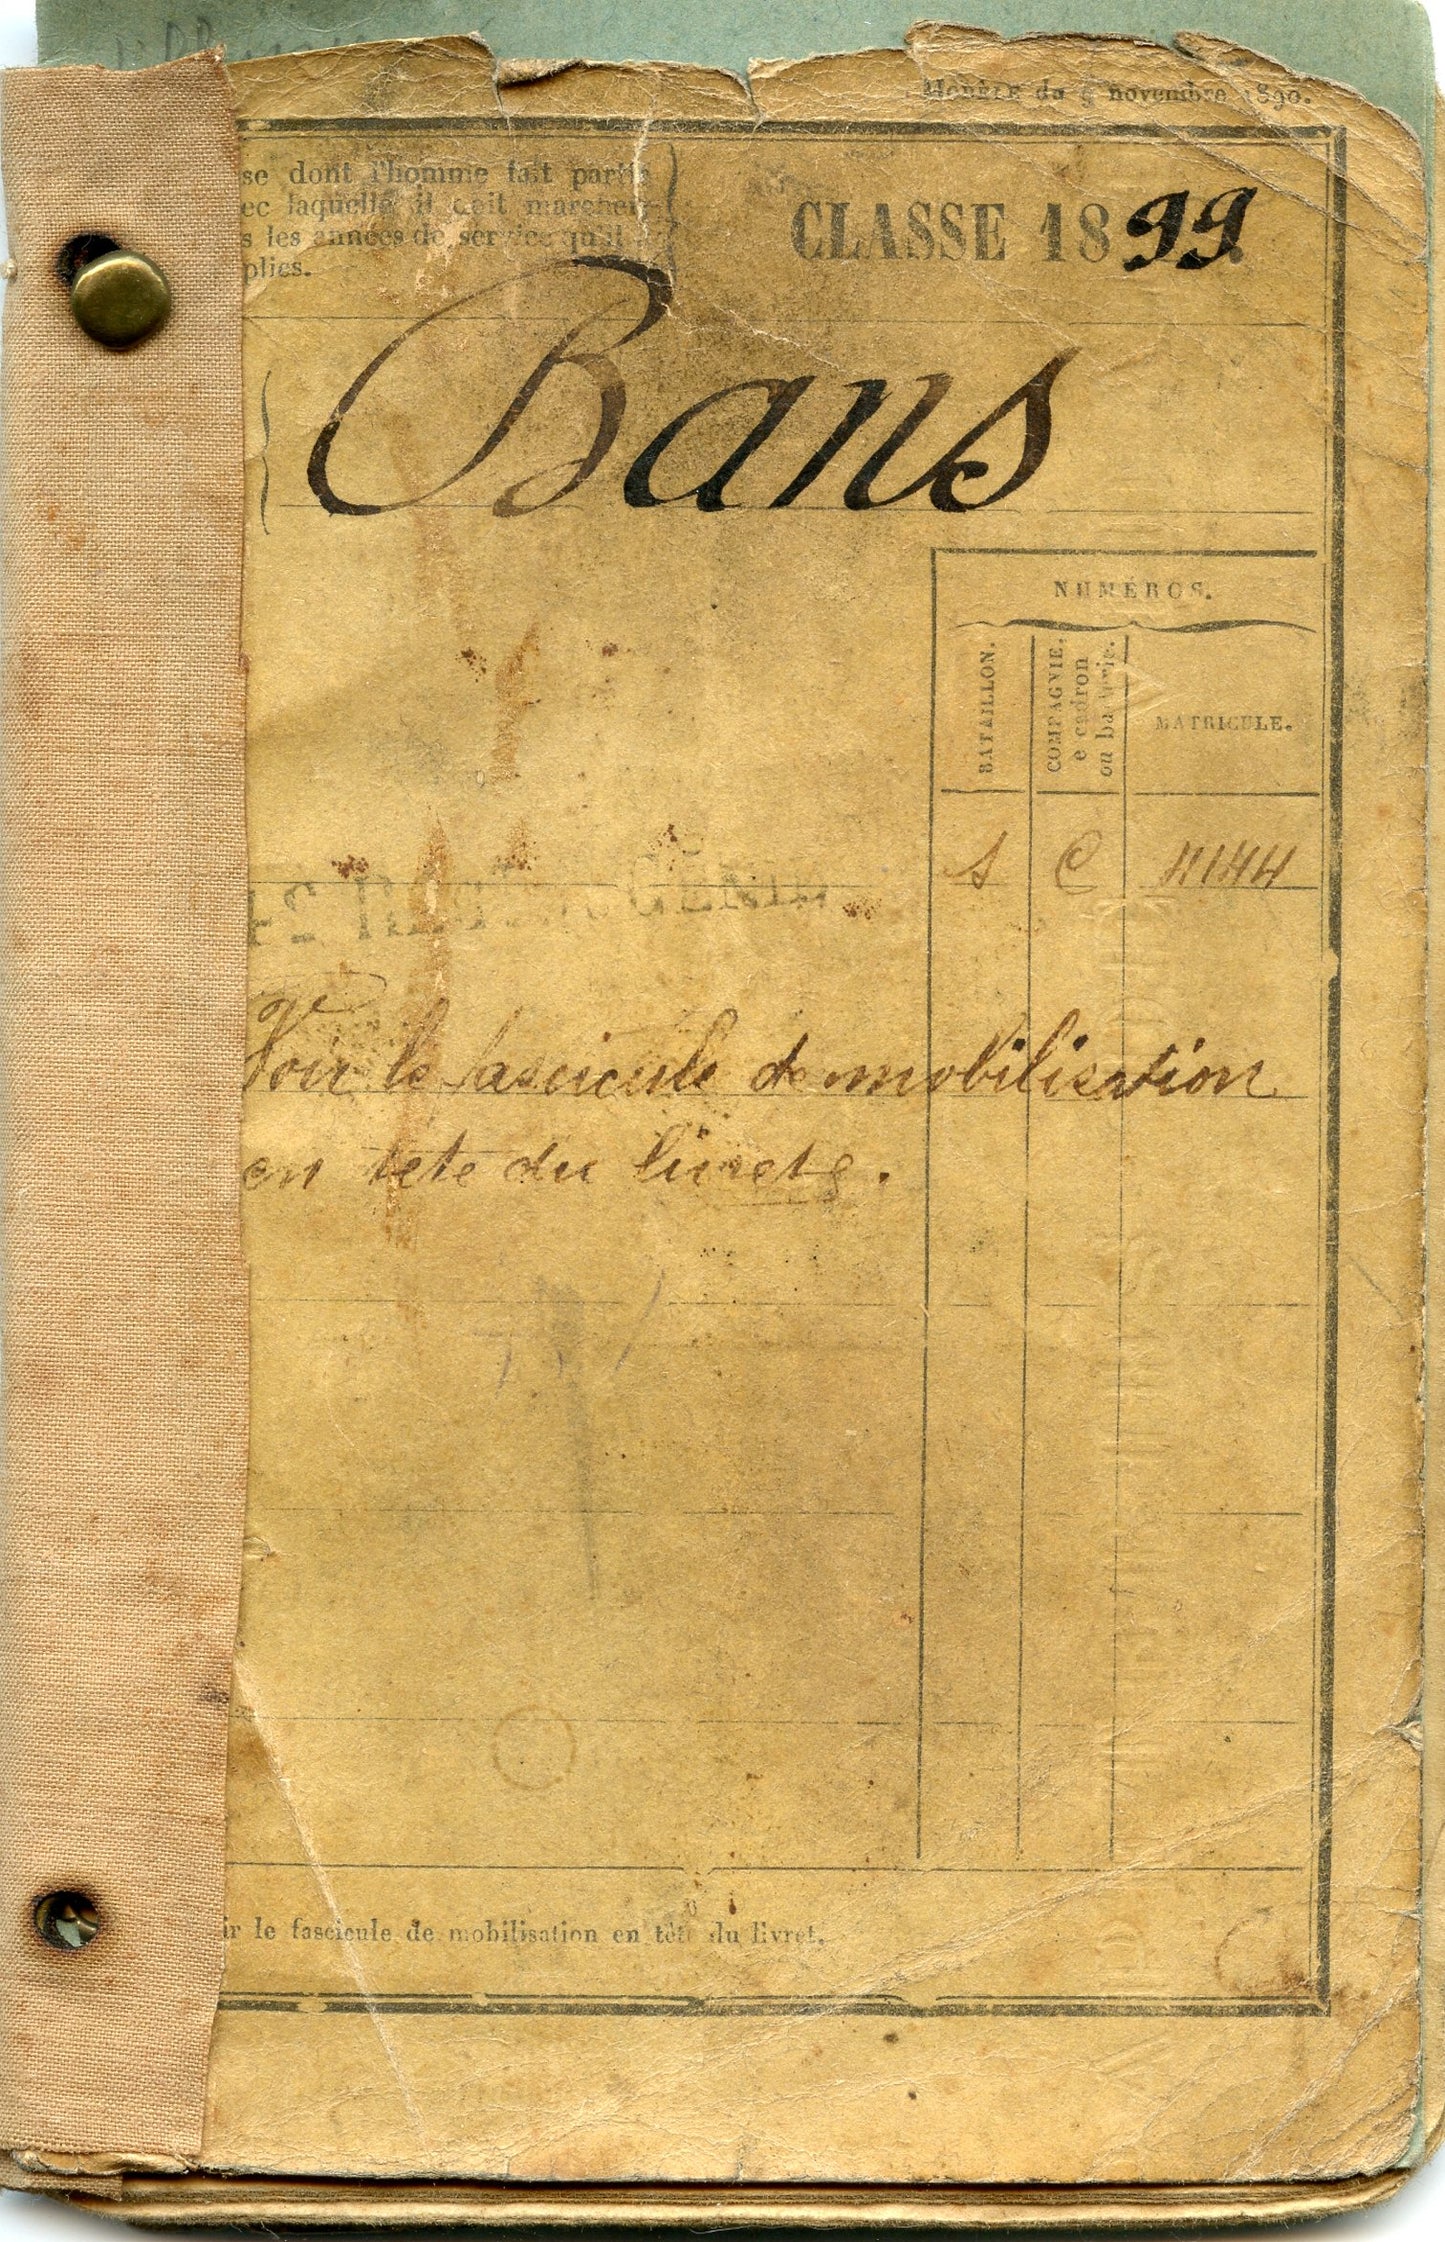 MODÈLE du 5 novembre 1890.
se dont l'homme fait partie
ec laquelle il doit marcher
s les années de service qu'il a
plies.
CLASSE 1899
Bans
NUMÉROS.
BATAILLON.
COMPAGNIE,
e cadron
ou batterie.
MATRICULE.
S C 4144
GÉNIE
Voir le fascicule de mobilisation
en tete du livret.
ir le fascicule de mobilisation en tête du livret.